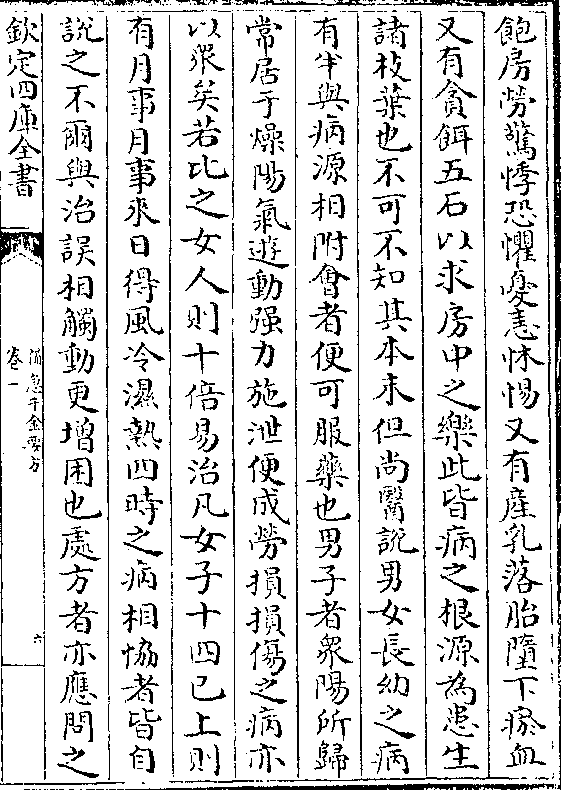 飽房勞驚悸恐懼憂恚怵惕又有產乳落胎墮下瘀血
又有貪餌五石以求房中之樂此皆病之根源為患生
諸枝葉也不可不知其本末但尚醫說男女長幼之病
有半與病源相附會者便可服藥也男子者衆陽所歸
常居于燥陽氣遊動强力施泄便成勞損損傷之病亦
以衆矣若比之女人則十倍易治凡女子十四已上則
有月事月事來日得風冷濕熱四時之病相協者皆自
說之不爾與治誤相觸動更增困也處方者亦應問之
欽定四庫全書
備急千金要方
卷一
六